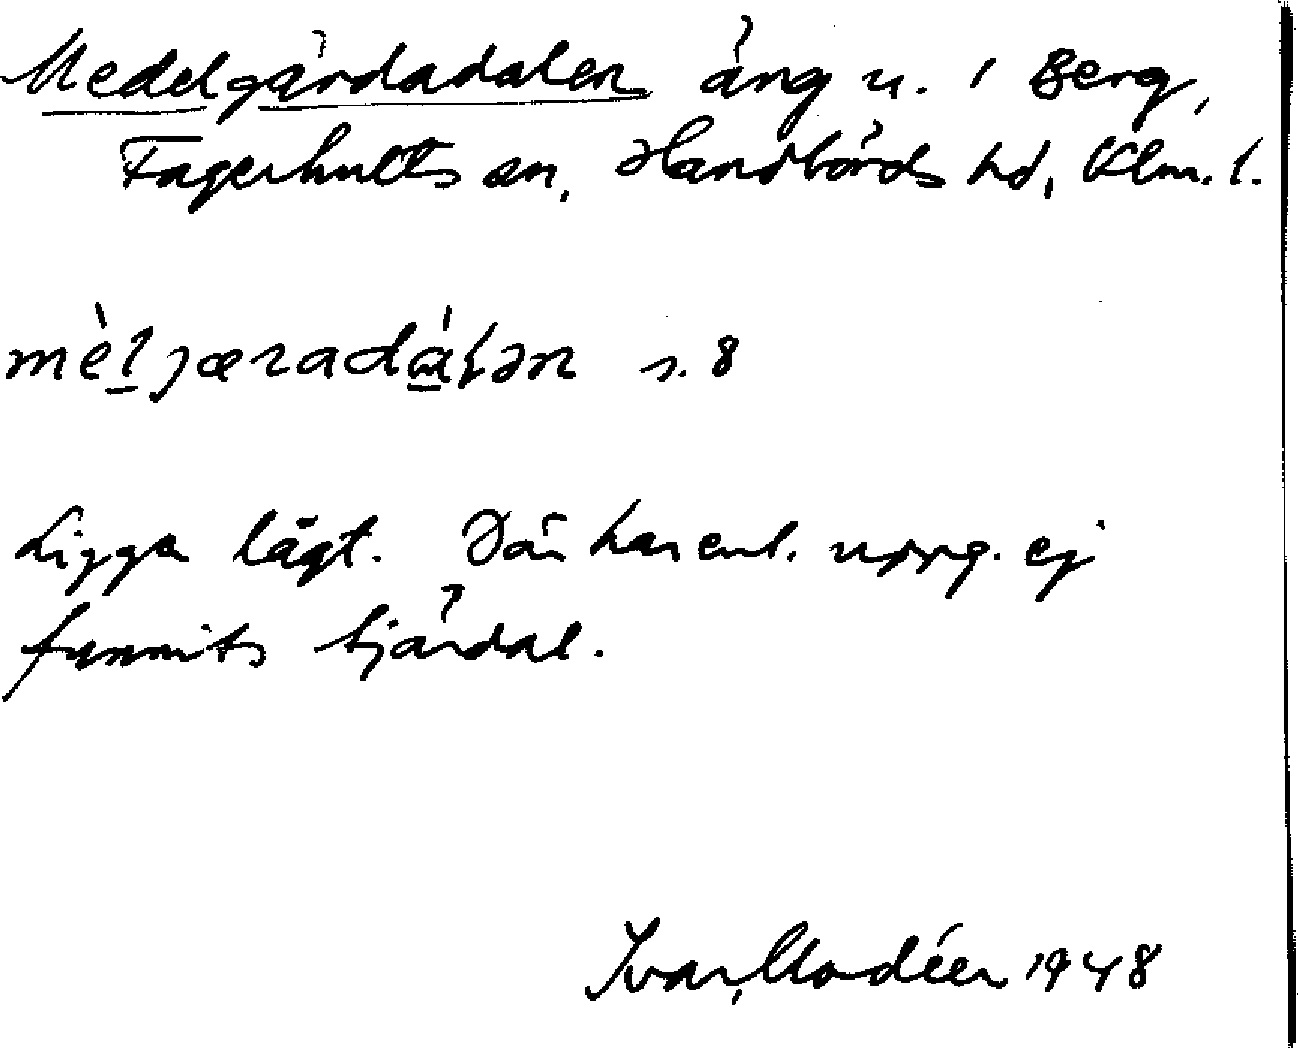 Medelgärdadalen äng u. i Berg,
Fagerhults sn, Handbörds hd, Klm. l.
mèljæradálən s. 8
Ligger lågt. Där har enl. uppg. ej
funnits tjärdal.
Ivar Modéer 1948